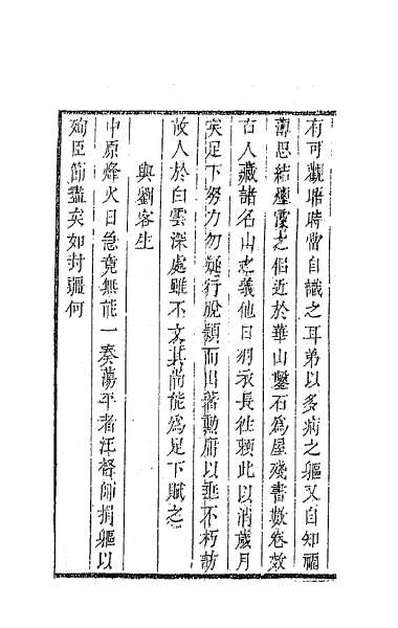 有可觀據時當自識之耳弟以多病之軀又自知福
薄思結煙霞之侶近於華山鑿石爲屋殘書數卷效
古人藏諸名山之義他日羽衣長往藉此以消歲月
矣足下努力勿疑行脫穎而出著勳庸以垂不朽訪
故人於白雲深處雖不文其尚能爲足下賦之
與劉客生
中原烽火日急竟無能一奏蕩平者汪督師捐軀以
殉臣節盡矣如封疆何